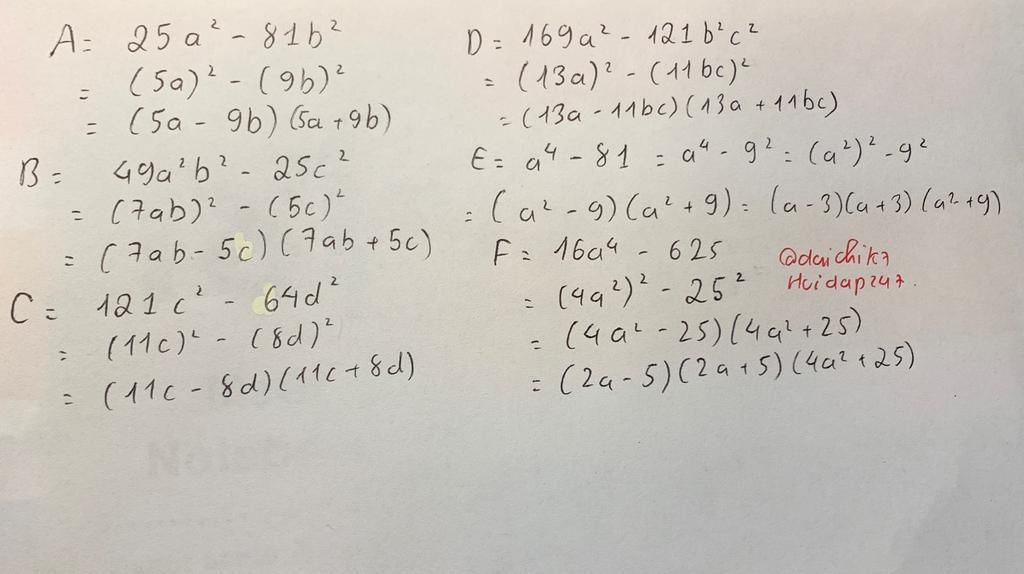 A = 25a² - 81b²
= (5a)² - (9b)²
= (5a - 9b) (5a + 9b)
B = 49a²b² - 25c²
= (7ab)² - (5c)²
= (7ab - 5c) (7ab + 5c)
C = 121c² - 64d²
= (11c)² - (8d)²
= (11c - 8d) (11c + 8d)
D = 169a² - 121b²c²
= (13a)² - (11bc)²
= (13a - 11bc) (13a + 11bc)
E = a⁴ - 81 = a⁴ - 9² = (a²)² - 9²
= (a² - 9) (a² + 9) = (a - 3)(a + 3) (a² + 9)
F = 16a⁴ - 625
= (4a²)² - 25²
= (4a² - 25) (4a² + 25)
= (2a - 5) (2a + 5) (4a² + 25)
Hoidap247.